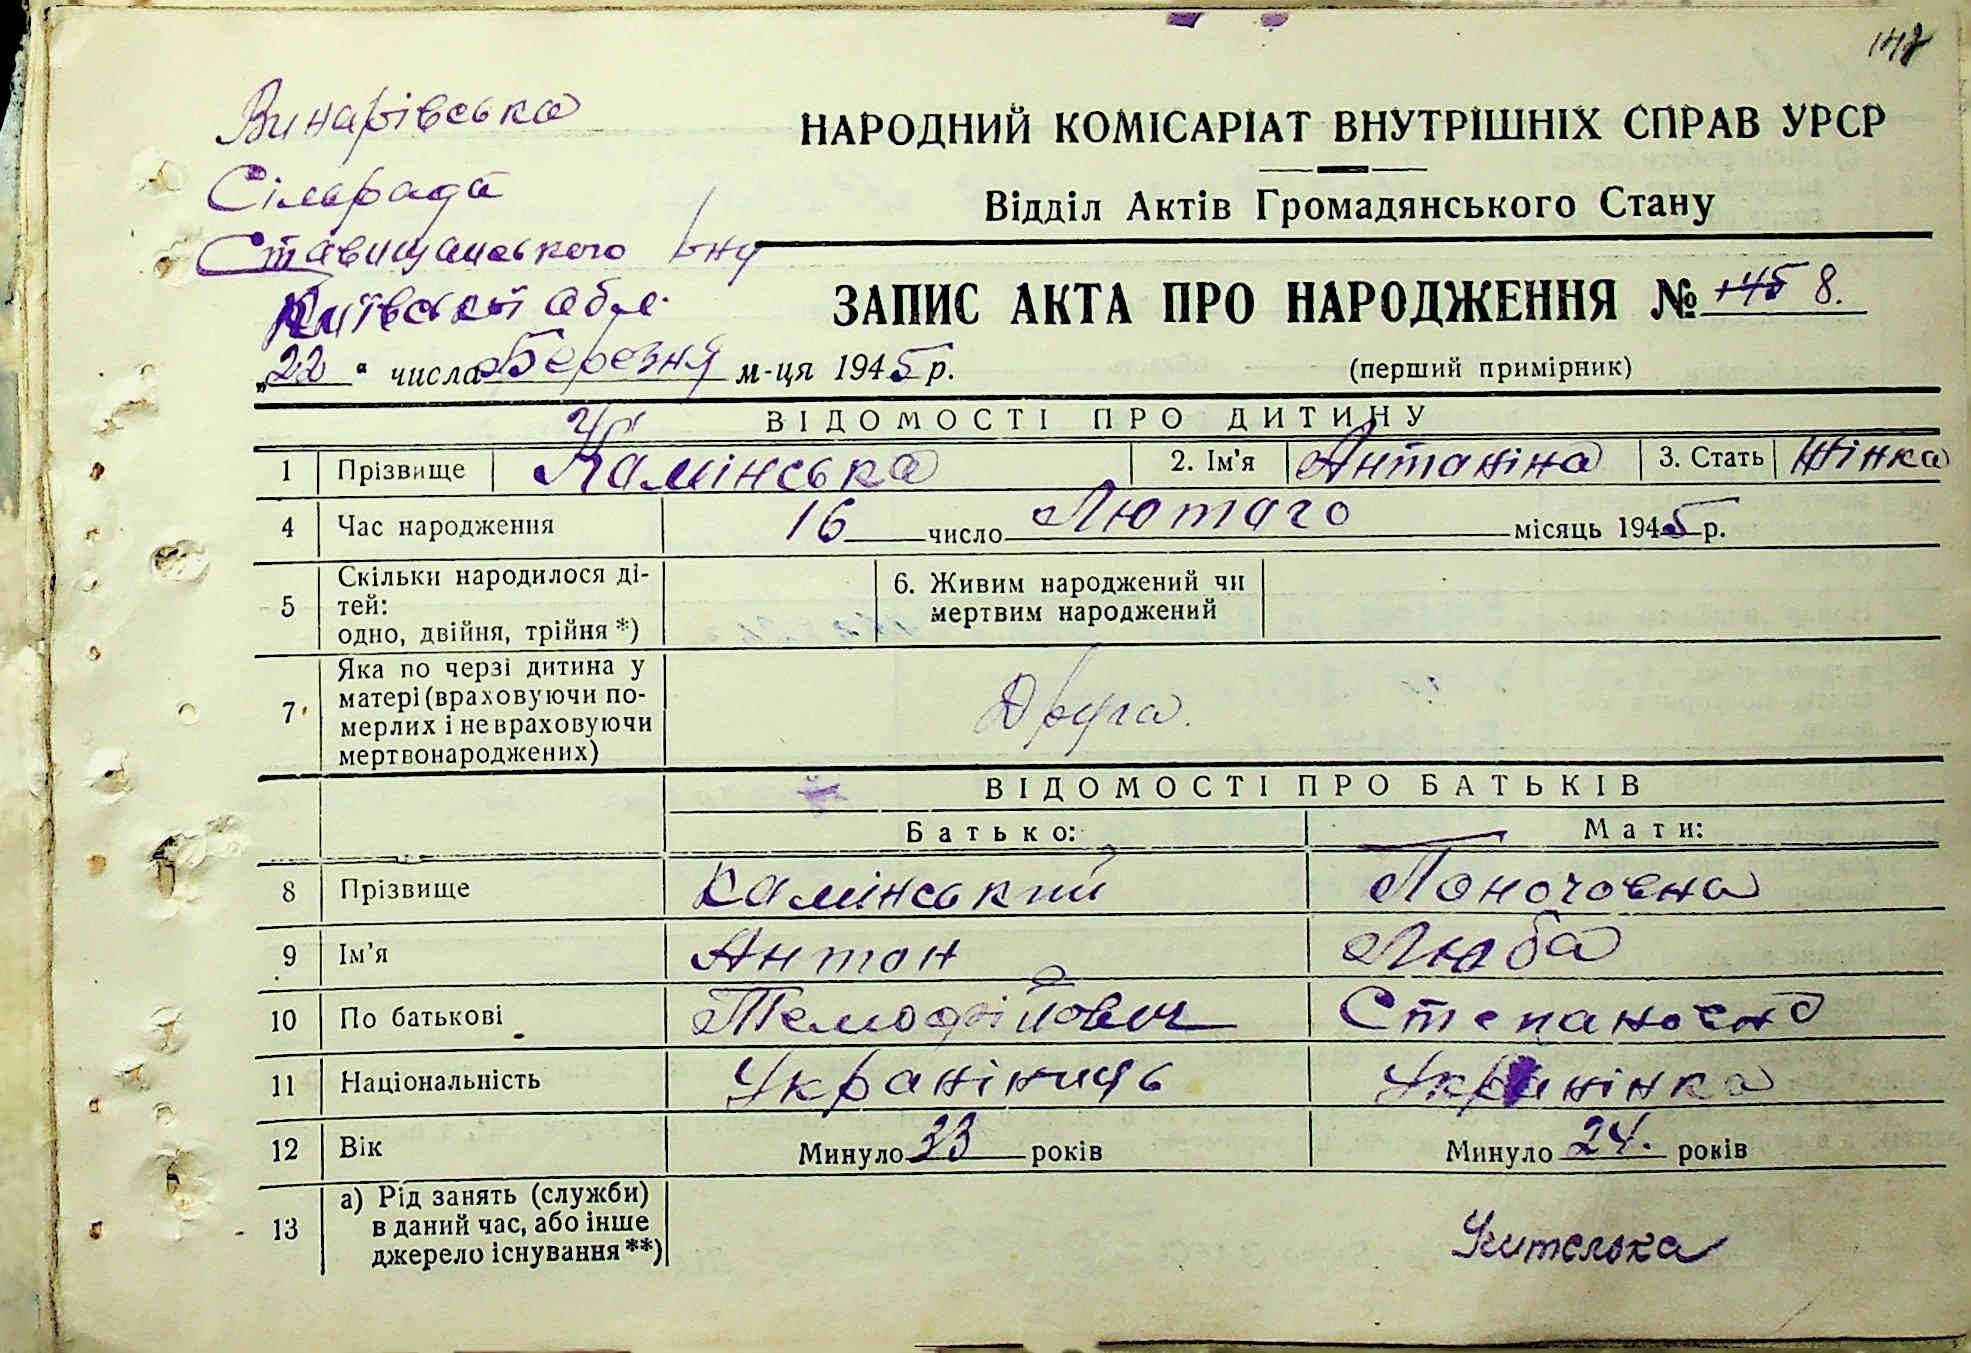 148
Винарівська
Сільрада
Ставищанського р-ну
Київської обл.
НАРОДНИЙ КОМІСАРІАТ ВНУТРІШНІХ СПРАВ УРСР
Відділ Актів Громадянського Стану
ЗАПИС АКТА ПРО НАРОДЖЕННЯ № 145 8.
„22“ числа Березня м-ця 1945 р.
(перший примірник)
ВІДОМОСТІ ПРО ДИТИНУ
1 Прізвище Камінська 2. Ім'я Антаніна 3. Стать Жінка
4 Час народження 16 число Лютаго місяць 1945 р.
5 Скільки народилося ді-
тей:
одно, двійня, трійня *)
6. Живим народжений чи
мертвим народжений
7 Яка по черзі дитина у
матері (враховуючи по-
мерлих і не враховуючи
мертвонароджених)
Друга.
ВІДОМОСТІ ПРО БАТЬКІВ
Батько: Мати:
8 Прізвище Камінський
9 Ім'я Антон Люба
10 По батькові Темофійович Степановна
11 Національність Украніниць Укранінка
12 Вік Минуло 33 років Минуло 24. років
13 а) Рід занять (служби)
в даний час, або інше
джерело існування **)
Учителька